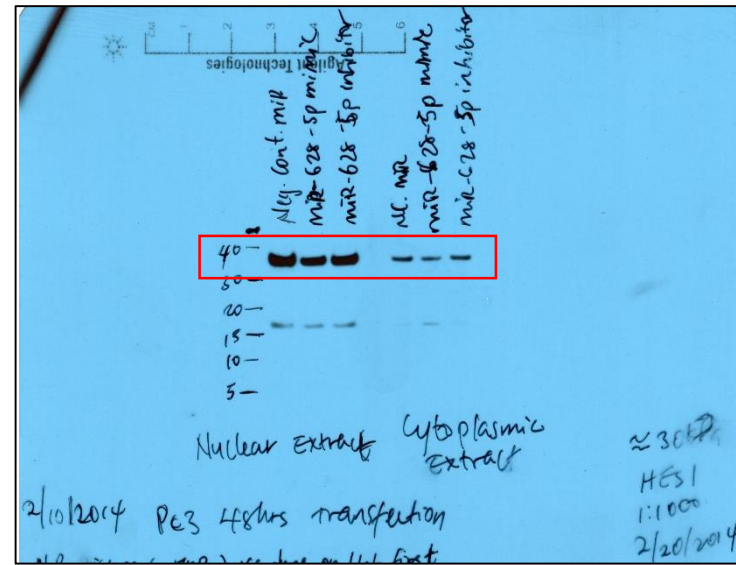 CM 1 2 3 4 5 6
Agilent Technologies
Neg. Cont. miR
miR-628-5p mimic
miR-628-5p inhibitor
NC. miR
miR-628-5p mimic
miR-628-5p inhibitor
40
30
20
15
10
5
Nuclear Extract
Cytoplasmic
Extract
≈30
HES1
1:1000
2/20/2014
2/10/2014 PC3 48hrs transfection
first